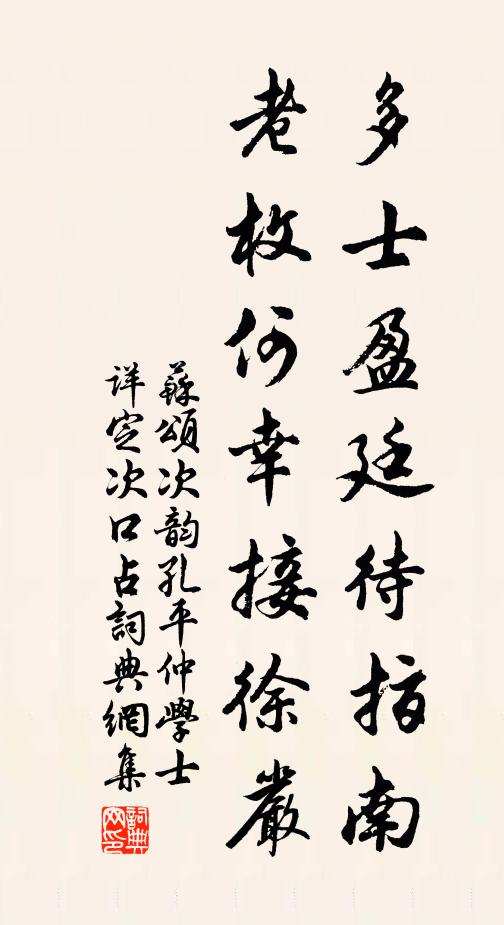 多士盈廷待指南
老枚何幸接徐嚴
蘇頌次韵孔平仲學士
详定次口占詞典網集
詞典
网印